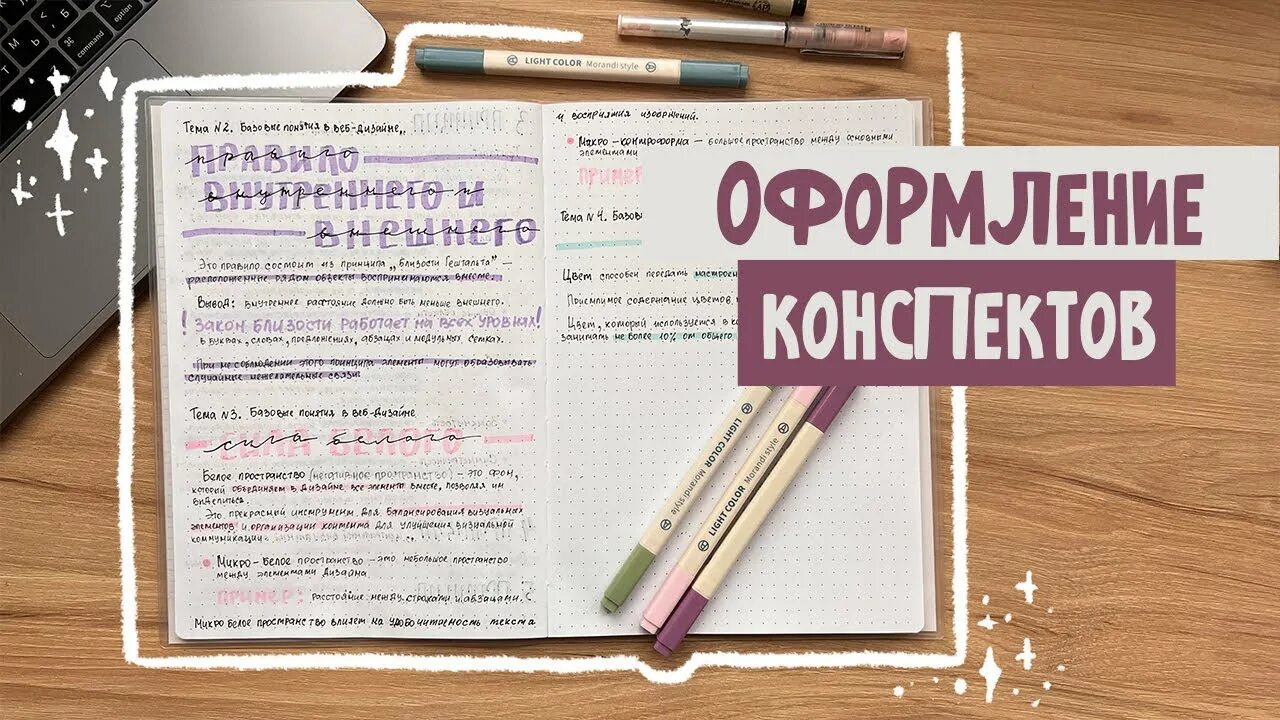 Б
Ю
command
option
LIGHT COLOR Morandi style
Тема №2. Базовые понятия в веб-дизайне
ПРАВИЛО
правило
ВНУТРЕННЕГО И
внутреннего и
ВНЕШНЕГО
внешнего
Это правило состоит из принципа „близости Гештальта" —
расположенные рядом объекты воспринимаются вместе.
Вывод: внутреннее растояние должно быть меньше внешнего.
! Закон близости работает на всех уровнях!
в буквах, словах, предложениях, абзацах и модульных сетках.
При не соблюдении этого принципа элементы могут образовывать
случайные нежелательные связи.
Тема №3. Базовые понятия в веб-дизайне
СИЛА БЕЛОГО
сила белого
Белое пространство (негативное пространство) — это фон,
который объединяет в дизайне все элементы вместе, позволяя им
выделиться.
Это прекрасный инструмент для балансирования визуальных
элементов и организации контента для улучшения визуальной
коммуникации.
Микро-белое пространство — это небольшое пространство
между элементами дизайна.
ПРИМЕР: расстояние между строками и абзацами.
Микро белое пространство влияет на удобочитаемость текста
и восприятия изображений.
Макро-контроформа — большое пространство между основными
элементами
ПРИМЕР
Тема №4. Базовы
Цвет способен передать настроен
Приемлимое содержание цветов
Цвет, который используется в к
занимать не более 10% от общего
ОФОРМЛЕНИЕ
КОНСПЕКТОВ
LIGHT COLOR Morandi style
LIGHT COLOR Morandi style